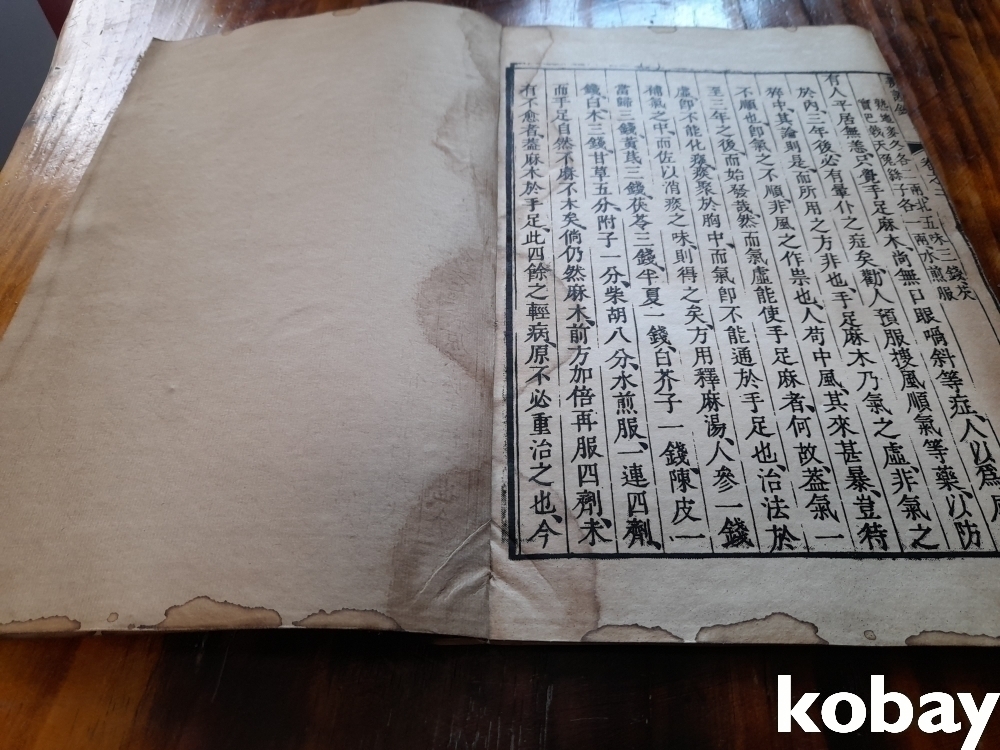 熟地麥冬各一兩北五味三錢芡
實巴戟天兔絲子各一兩水煎服
有人平居無恙只覺手足麻木尚無口眼喎斜等症、人以爲風
於內、三年後必有暈仆之症矣、勸人預服搜風順氣等藥、以防
猝中、其論則是、而所用之方非也、手足麻木乃氣之虛、非氣之
不順也、卽氣之不順、非風之作祟也、人苟中風、其來甚暴、豈待
至三年之後而始發哉、然而氣虛能使手足麻者、何故、葢氣一
虛卽不能化痰、痰聚於胸中、而氣卽不能通於手足也、治法於
補氣之中、而佐以消痰之味、則得之矣、方用釋麻湯、人參一錢
當歸三錢、黃芪三錢、茯苓三錢、半夏一錢、白芥子一錢、陳皮一
錢、白朮三錢、甘草五分、附子一分、柴胡八分、水煎服、一連四劑、
而手足自然不麻不木矣、倘仍然麻木、前方加倍再服四劑、未
有不愈者、葢麻木於手足、此四餘之輕病、原不必重治之也、今
kobay